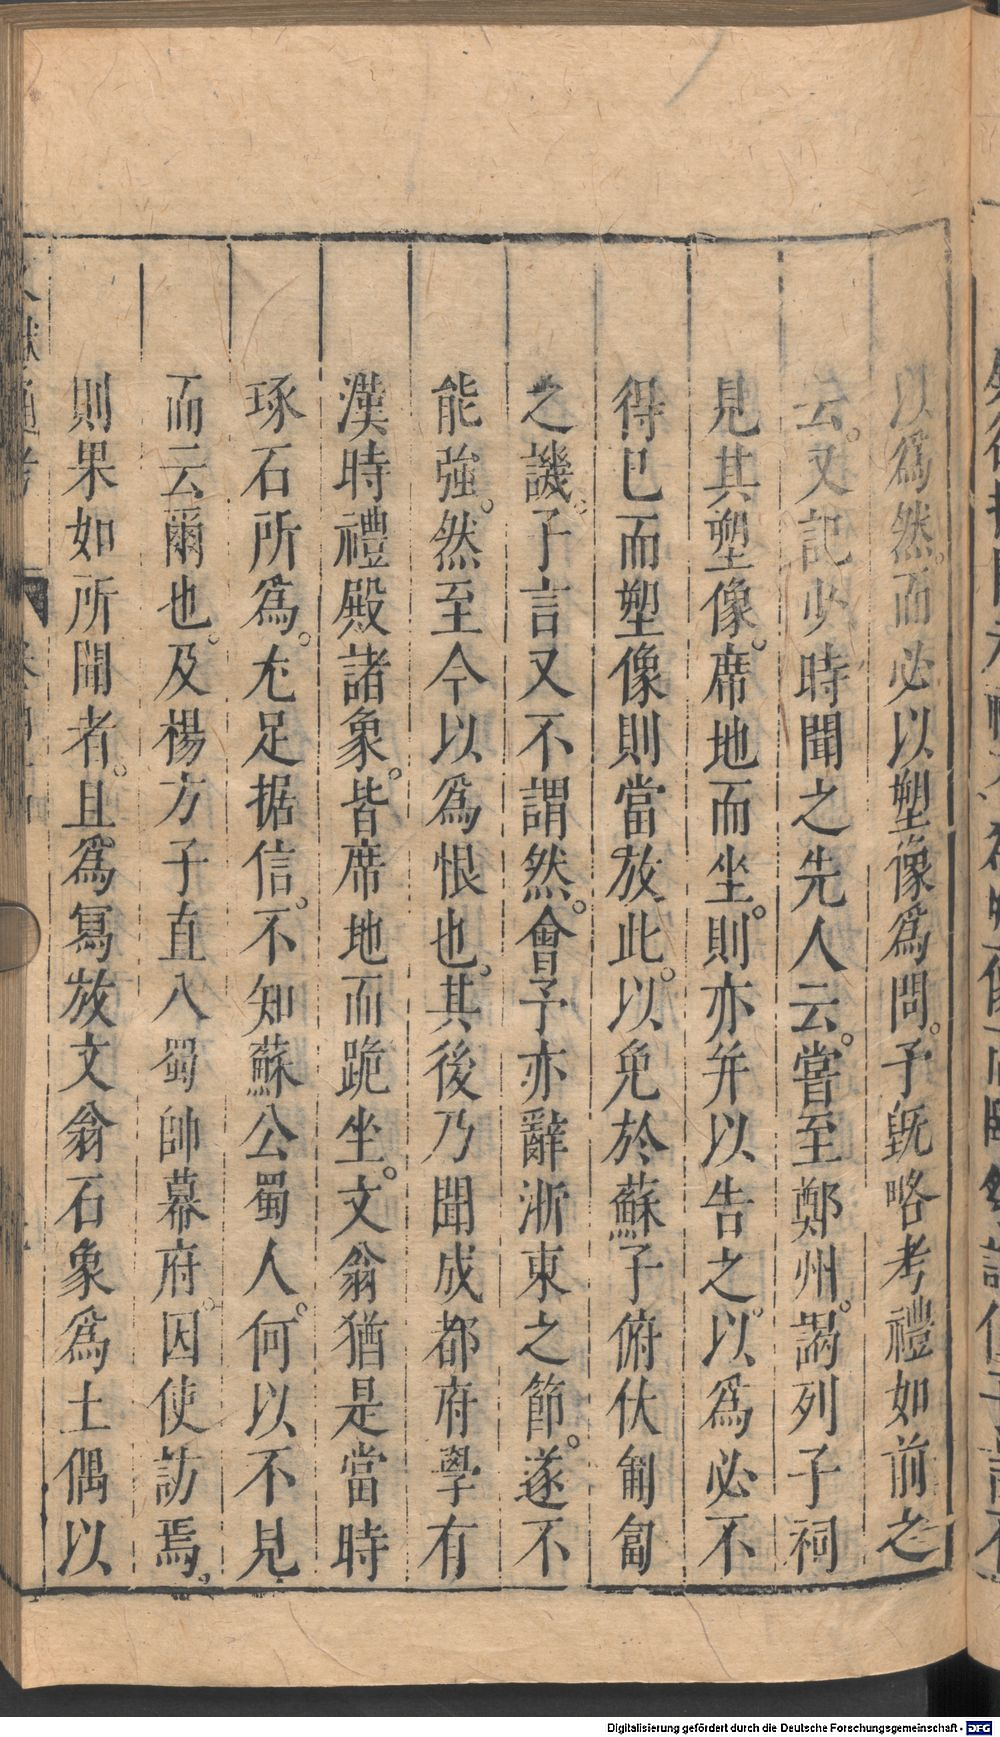 以爲然。而必以塑像爲問。予既略考禮如前之
云。又記少時聞之先人云。嘗至鄭州。謁列子祠
見其塑像。席地而坐。則亦并以告之。以爲必不
得已而塑像則當放此。以免於蘇子俯伏匍匐
之譏。子言又不謂然。會予亦辭浙東之節。遂不
能強。然至今以爲恨也。其後乃聞成都府學有
漢時禮殿諸象。皆席地而跪坐。文翁猶是當時
琢石所爲。尤足据信。不知蘇公蜀人。何以不見
而云爾也。及楊方子直入蜀帥幕府。因使訪焉。
則果如所聞者。且爲冩放文翁石象爲土偶以
獻通考
Digitalisierung gefördert durch die Deutsche Forschungsgemeinschaft - DFG